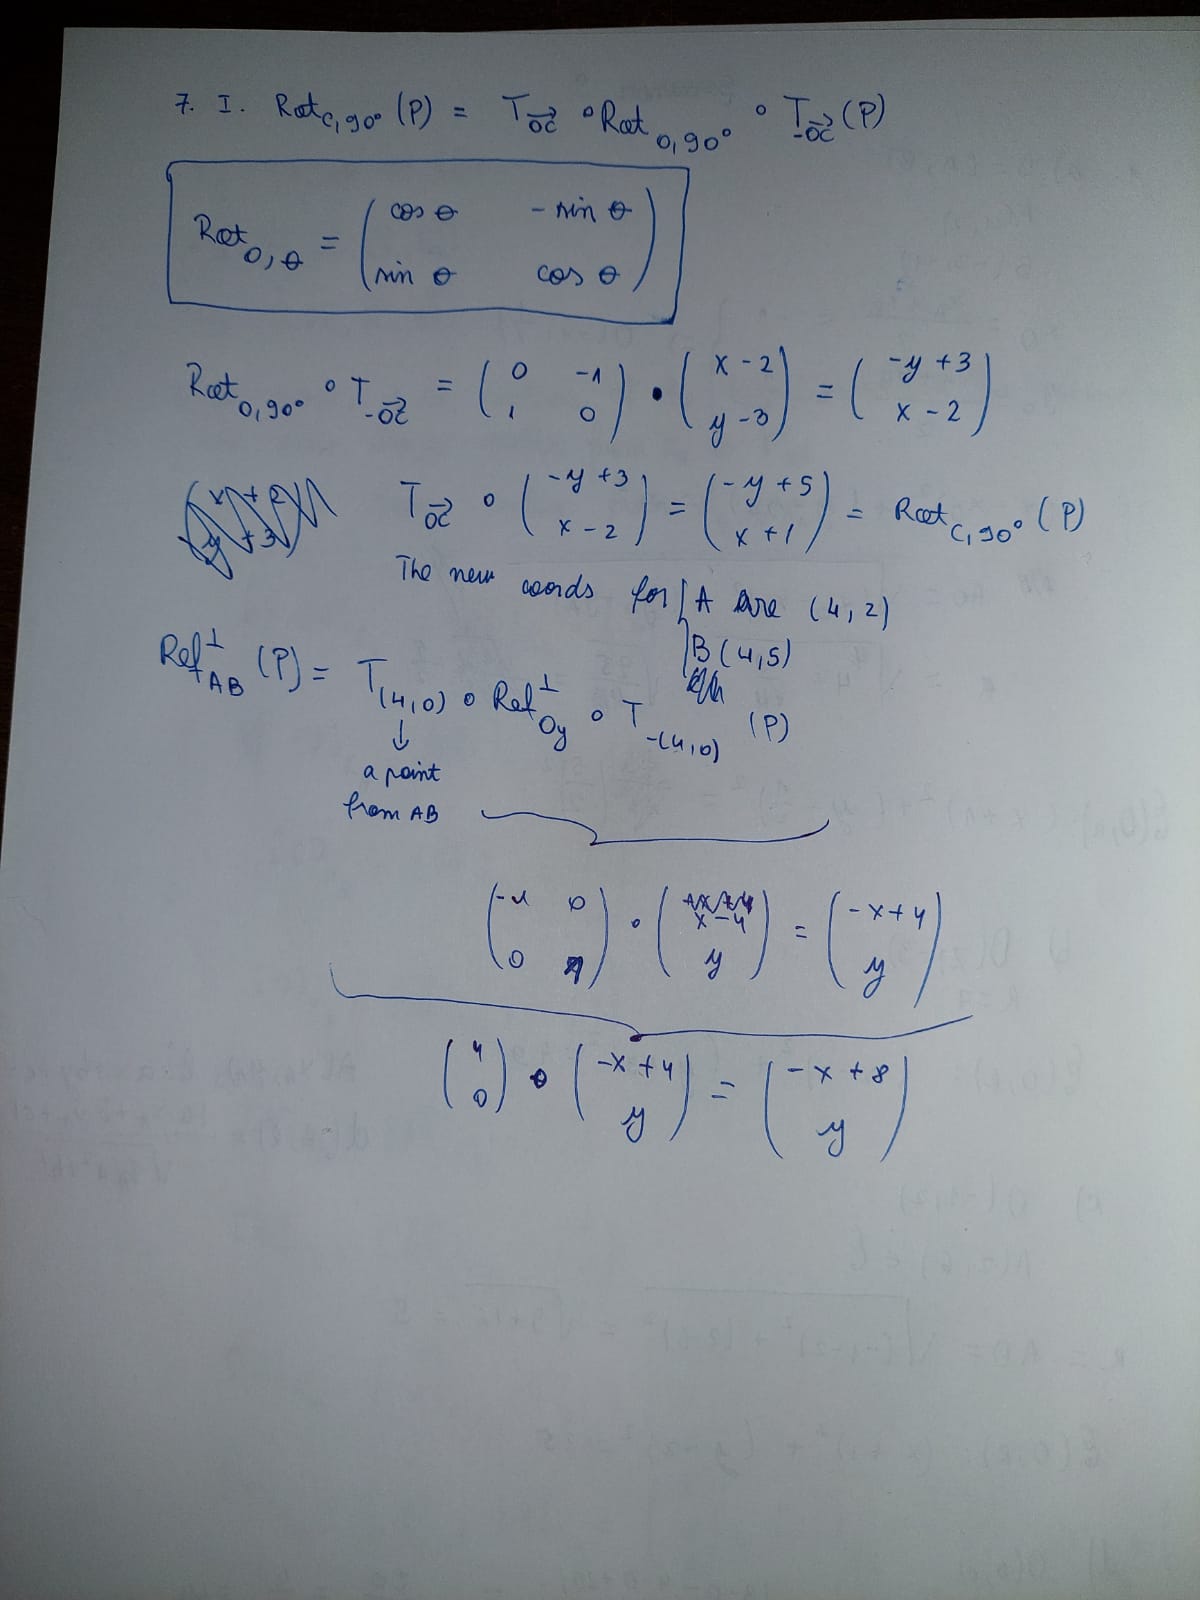 7. I. Rot_{C,90°} (P) = T_{\vec{OC}} ∘ Rot_{O,90°} ∘ T_{-\vec{OC}} (P)
Rot_{O,θ} = ( cos θ   - sin θ
sin θ   cos θ )
Rot_{O,90°} ∘ T_{-\vec{OC}} = ( 0   -1 ) • ( x - 2 ) = ( -y + 3 )
( 1   0 ) ( y - 3 ) ( x - 2 )
T_{\vec{OC}} ∘ ( -y + 3 ) = ( -y + 5 ) = Rot_{C,90°} (P)
( x - 2 ) ( x + 1 )
The new coords for A are (4, 2)
B (4, 5)
Ref^⊥_{AB} (P) = T_{(4,0)} ∘ Ref^⊥_{Oy} ∘ T_{-(4,0)} (P)
↓
a point
from AB
( -1   0 ) • ( x - 4 ) = ( -x + 4 )
( 0   1 ) ( y ) ( y )
( 4 ) ∘ ( -x + 4 ) = ( -x + 8 )
( 0 ) ( y ) ( y )